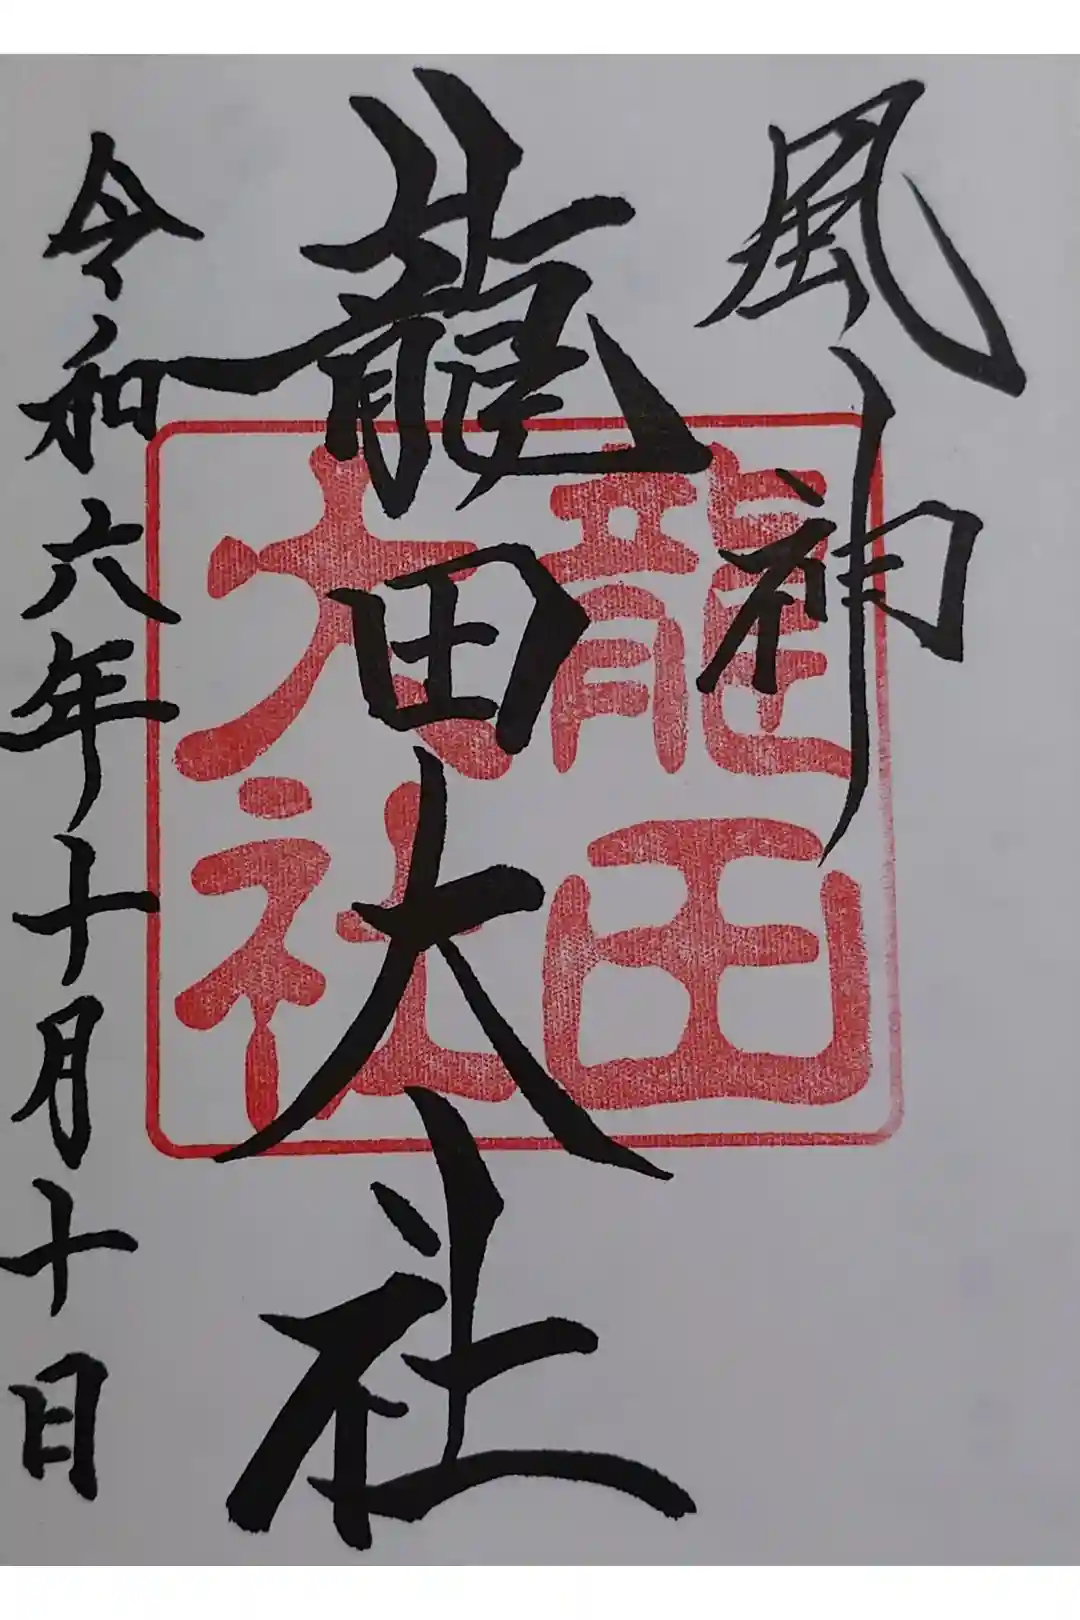 風神
龍田大社
令和六年十月十日
龍田
大社